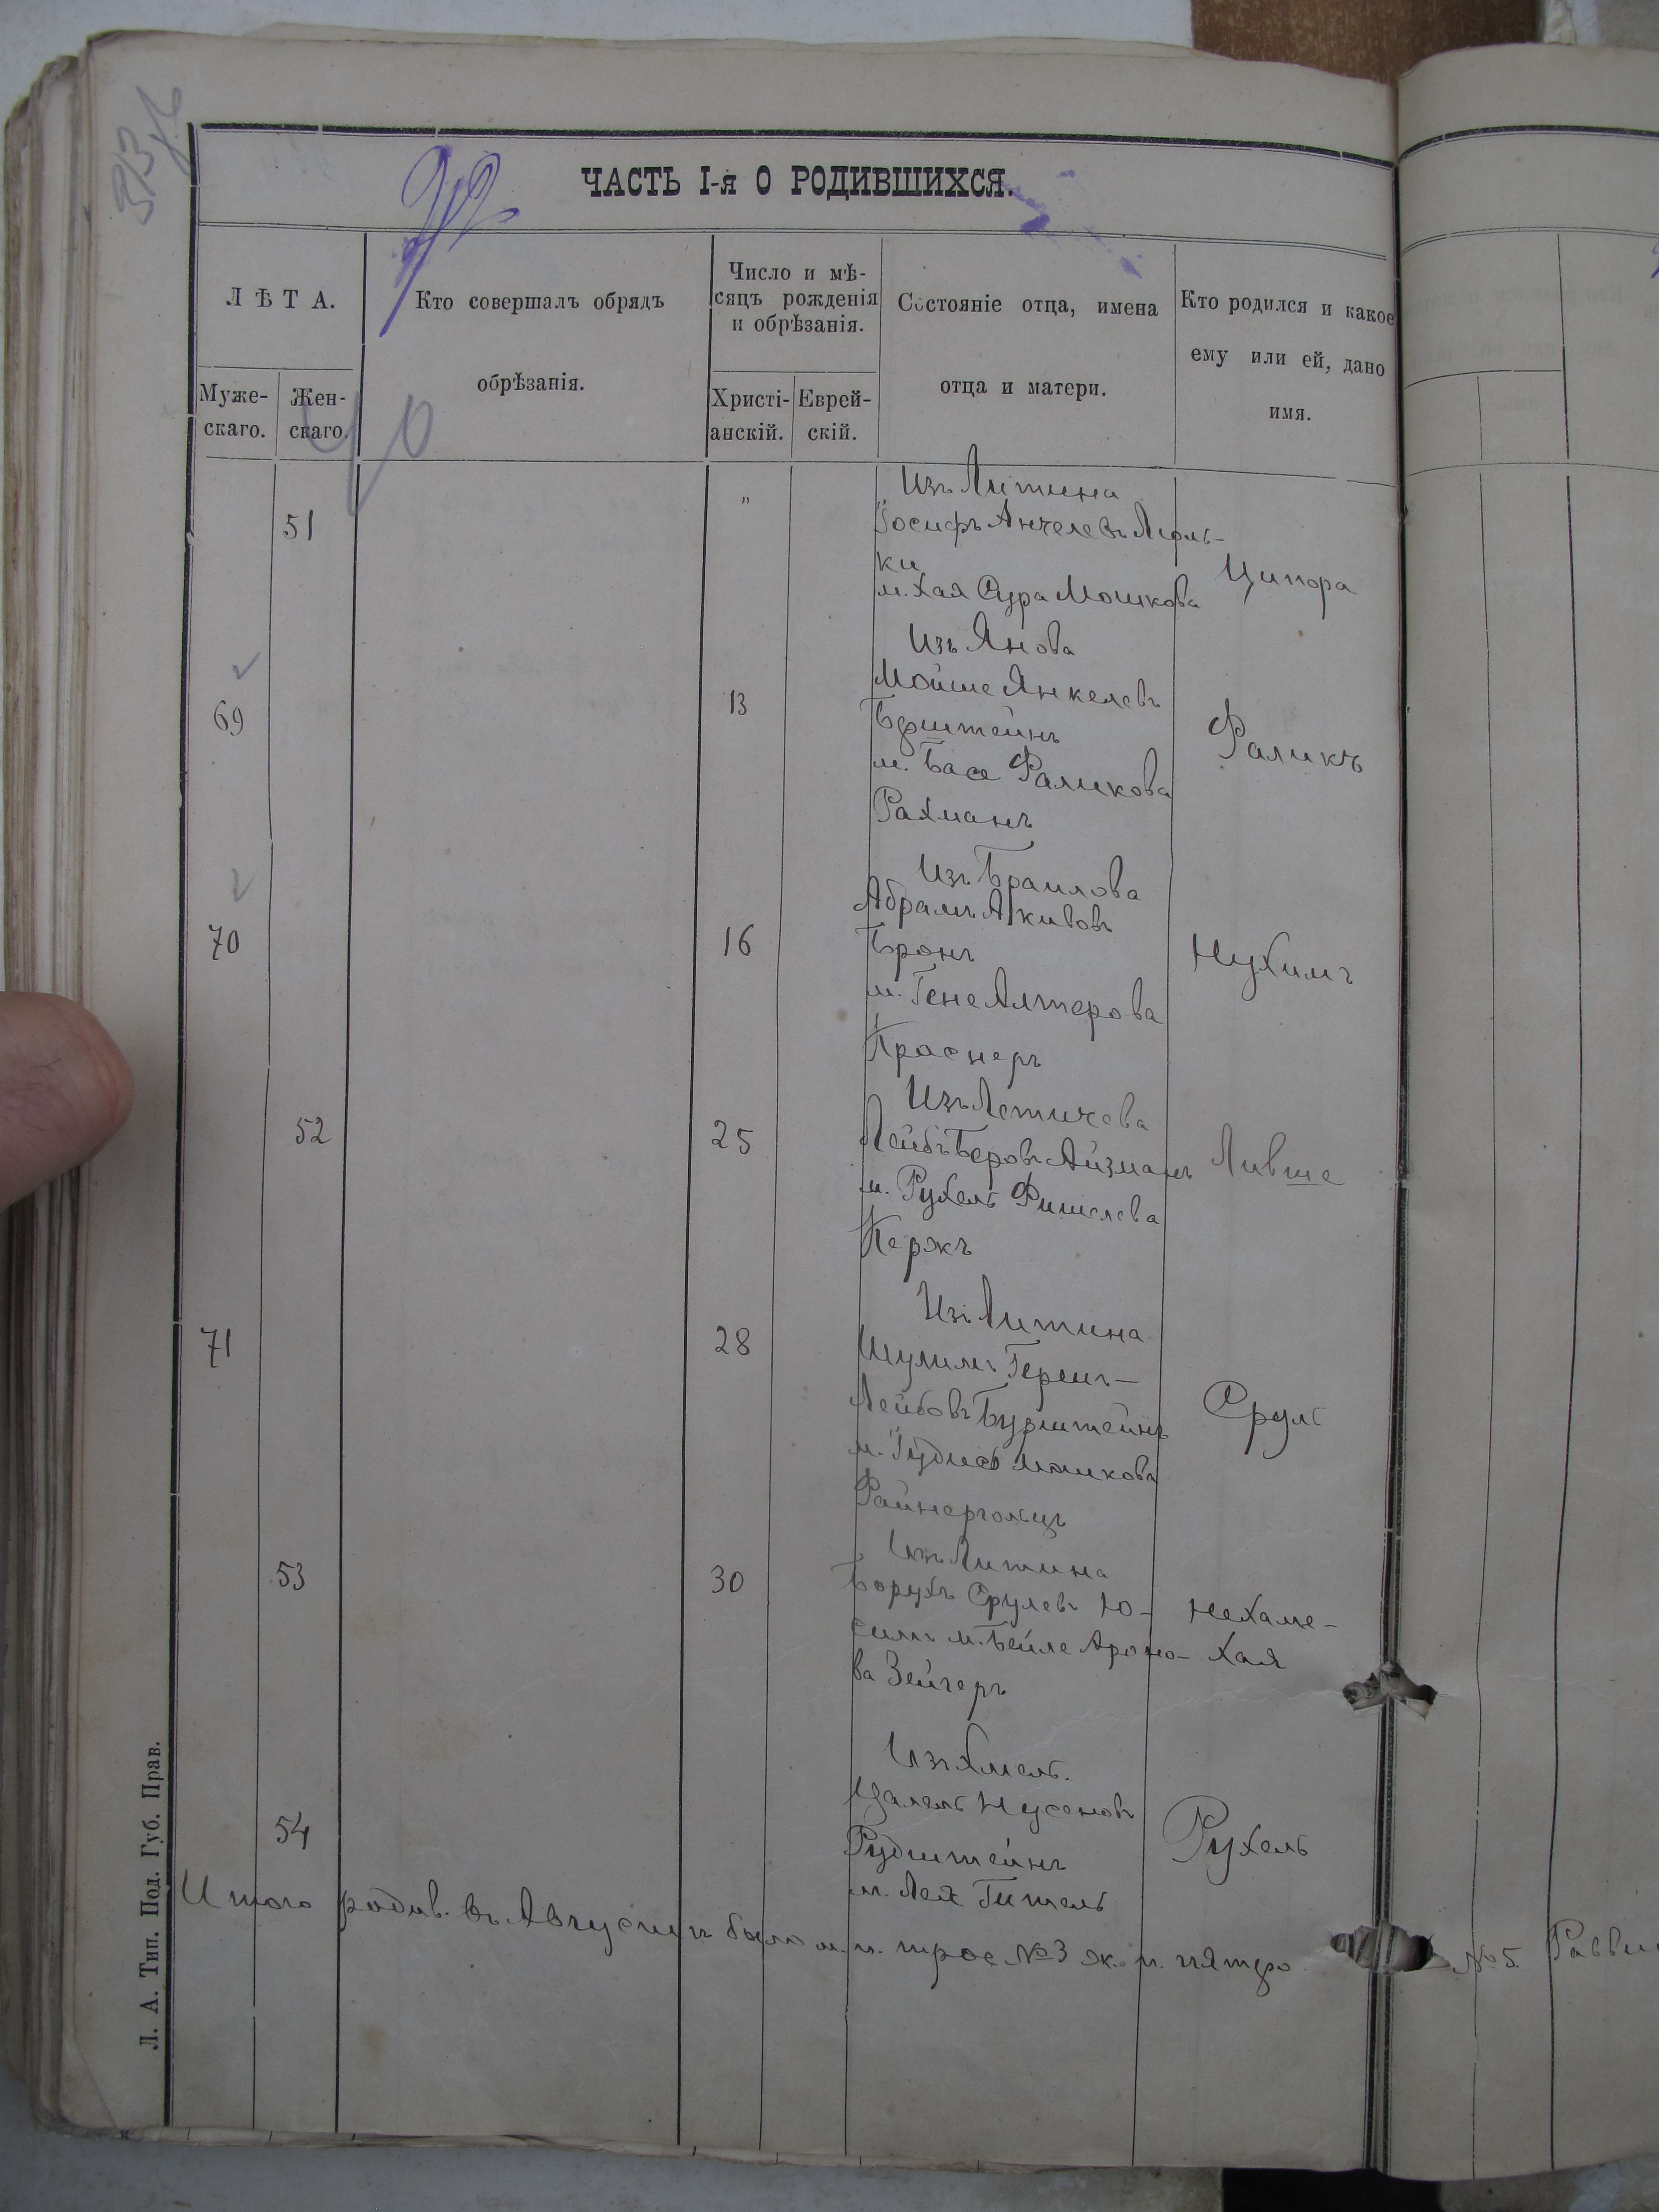 ЧАСТЬ I-я О РОДИВШИХСЯ.
ЛѢТА.
Муже-
скаго.
Жен-
скаго.
Кто совершалъ обрядъ
обрѣзанія.
Число и мѣ-
сяцъ рожденія
и обрѣзанія.
Христі-
анскій.
Еврей-
скій.
Состояніе отца, имена
отца и матери.
Кто родился и какое
ему или ей, дано
имя.
40
51
"
Изъ Литина
Іосифъ Анчелевъ Люль-
ки
м. Хая Сура Мошкова
Ципора
69
13
Изъ Янова
Мойше Янкелевъ
м. Бася Фаликова
Рахманъ
Фаликъ
70
16
Изъ Браилова
Абрамъ Акивовъ
Бронъ
м. Гене Алтерова
Краснеръ
Нухимъ
52
25
Изъ Летичева
Лейбъ Беровъ Айзманъ
м. Рухель Фишелева
Кержъ
Лившe
71
28
Изъ Литина
Шулимъ Герешъ-
Лейбовъ Бурштейнъ
м. Мошкова
Райнергольцъ
Сруль
53
30
Изъ Литина
Борухъ Срулевъ Ю-
м. Бейле Ароно-
ва Зейгеръ
Нехаме-
Хая
54
Изъ Хмель.
Цалель Нусоновъ
Рудштейнъ
м. Лея Гитель
Рухель
Итого родив. въ Августѣ было м. п. трое №3 ж. п. пятеро
№5.
Л. А. Тип. Под. Губ. Прав.